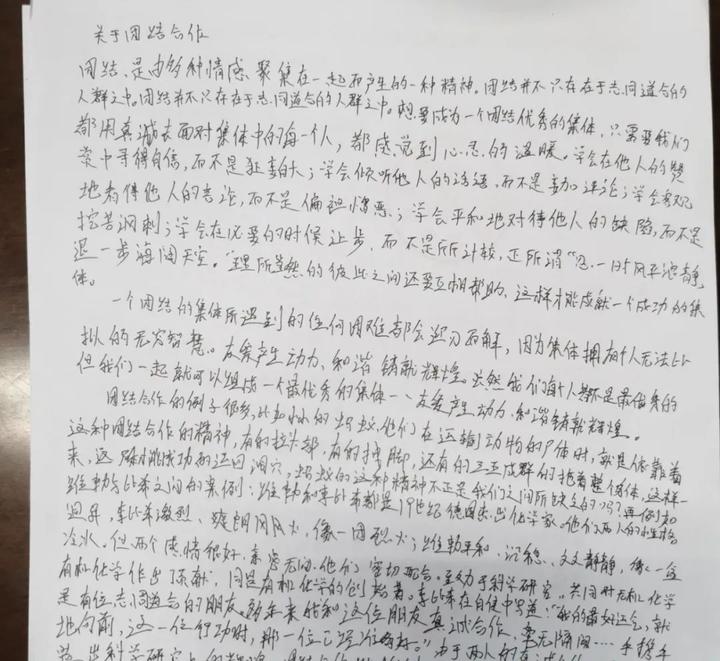 关于团结合作
团结、是由多种情感聚集在一起而产生的一种精神。团结并不只存在于志同道合的
人群之中。团结并不只存在于志同道合的人群之中。想要成为一个团结优秀的集体，只需要我们
都用真诚去面对集体中的每一个人，都感觉到心灵的温暖。学会在他人的赞
奖中寻得自信，而不是狂妄自大；学会倾听他人的话语，而不是妄加评论；学会客观
地看待他人的言论，而不是偏袒憎恶；学会平和地对待他人的缺陷，而不是
挖苦讽刺；学会在必要的时候让步，而不是斤斤计较，正所谓“忍一时风平浪静
退一步海阔天空。”理所当然的彼此之间还要互相帮助，这样才能成就一个成功的集
体。
一个团结的集体所遇到的任何困难都会迎刃而解，因为集体拥有个人无法比
拟的无穷智慧。友爱产生动力，和谐铸就辉煌。虽然我们每个人都不是最优秀的
但我们一起就可以组成一个最优秀的集体、友爱产生动力，和谐铸就辉煌。
团结合作的例子很多，比如小小的蚂蚁，他们在运输动物的尸体时，就是依靠着
这种团结合作的精神，有的拉头部，有的拽脚，还有的三五成群的抱着整个身体，这样一
来，返才能成功的运回洞穴，蚂蚁的这种精神不正是我们之间所缺乏的吗？再例如
维勒与李比希之间的案例：维勒和李比希都是19世纪德国杰出化学家。他们两人的性格
迥异，李比希激烈、犹如风风火，像一团烈火；维勒平和、沉稳、文文静静，像一盆
冷水。但两个感情很好，亲密无间。他们密切配合，致力于科学研究。共同对无机化学
有机化学作出了贡献，同是有机化学的创始者。李比希在自传中写道：“我的最好运气，就
是有位志同道合的朋友。多年来我和这位朋友真诚合作，毫无隔阂……手携手
地向前，这一位行动时，那一位已准备好。”由于两人的真诚
科学研究